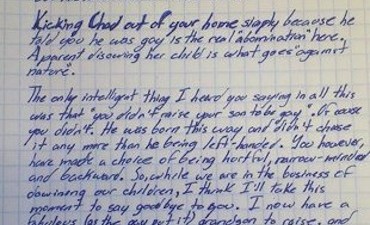 Kicking Chad out of your home simply because he
told you he was gay is the real "abomination" here.
A parent disowning her child is what goes "against
nature".
The only intelligent thing I heard you saying in all this
was that "you didn't raise your son to be gay". Of course
you didn't. He was born this way and didn't choose
it any more than he being left-handed. You however,
have made a choice of being hurtful, narrow-minded
and backward. So, while we are in the business of
disowning our children, I think I'll take this
moment to say goodbye to you. I now have a
fabulous (as the gay put it) grandson to raise, and